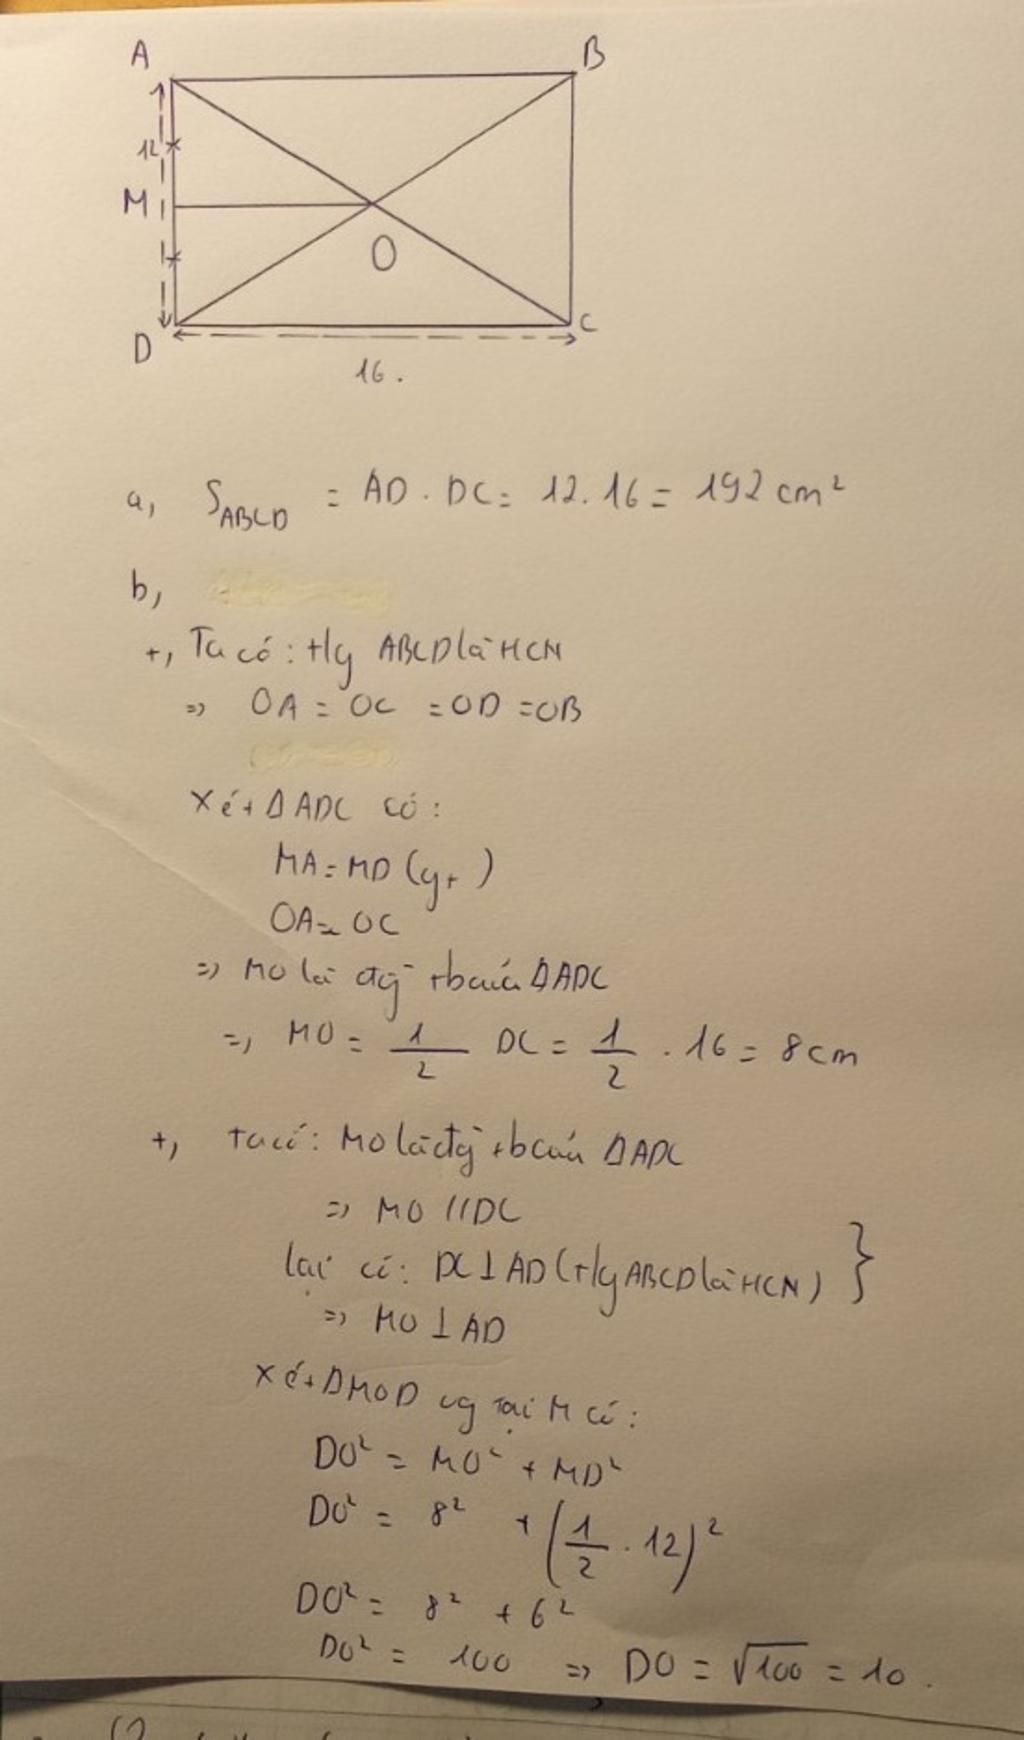 A
B
12
M
O
D
C
16.
a, S_ABCD = AD . DC = 12. 16 = 192 cm²
b,
+, Ta có: t/g ABCD là HCN
=> OA = OC = OD = OB
Xét Δ ADC có:
MA = MD (gt)
OA = OC
=> MO là đg tb của Δ ADC
=> MO = 1/2 DC = 1/2 . 16 = 8 cm
+, ta có: MO là đg tb của Δ ADC
=> MO // DC
lại có: DC ⊥ AD (t/g ABCD là HCN) }
=> MO ⊥ AD
Xét Δ MOD vg tại M có:
DO² = MO² + MD²
DO² = 8² + (1/2 . 12)²
DO² = 8² + 6²
DO² = 100 => DO = √100 = 10.